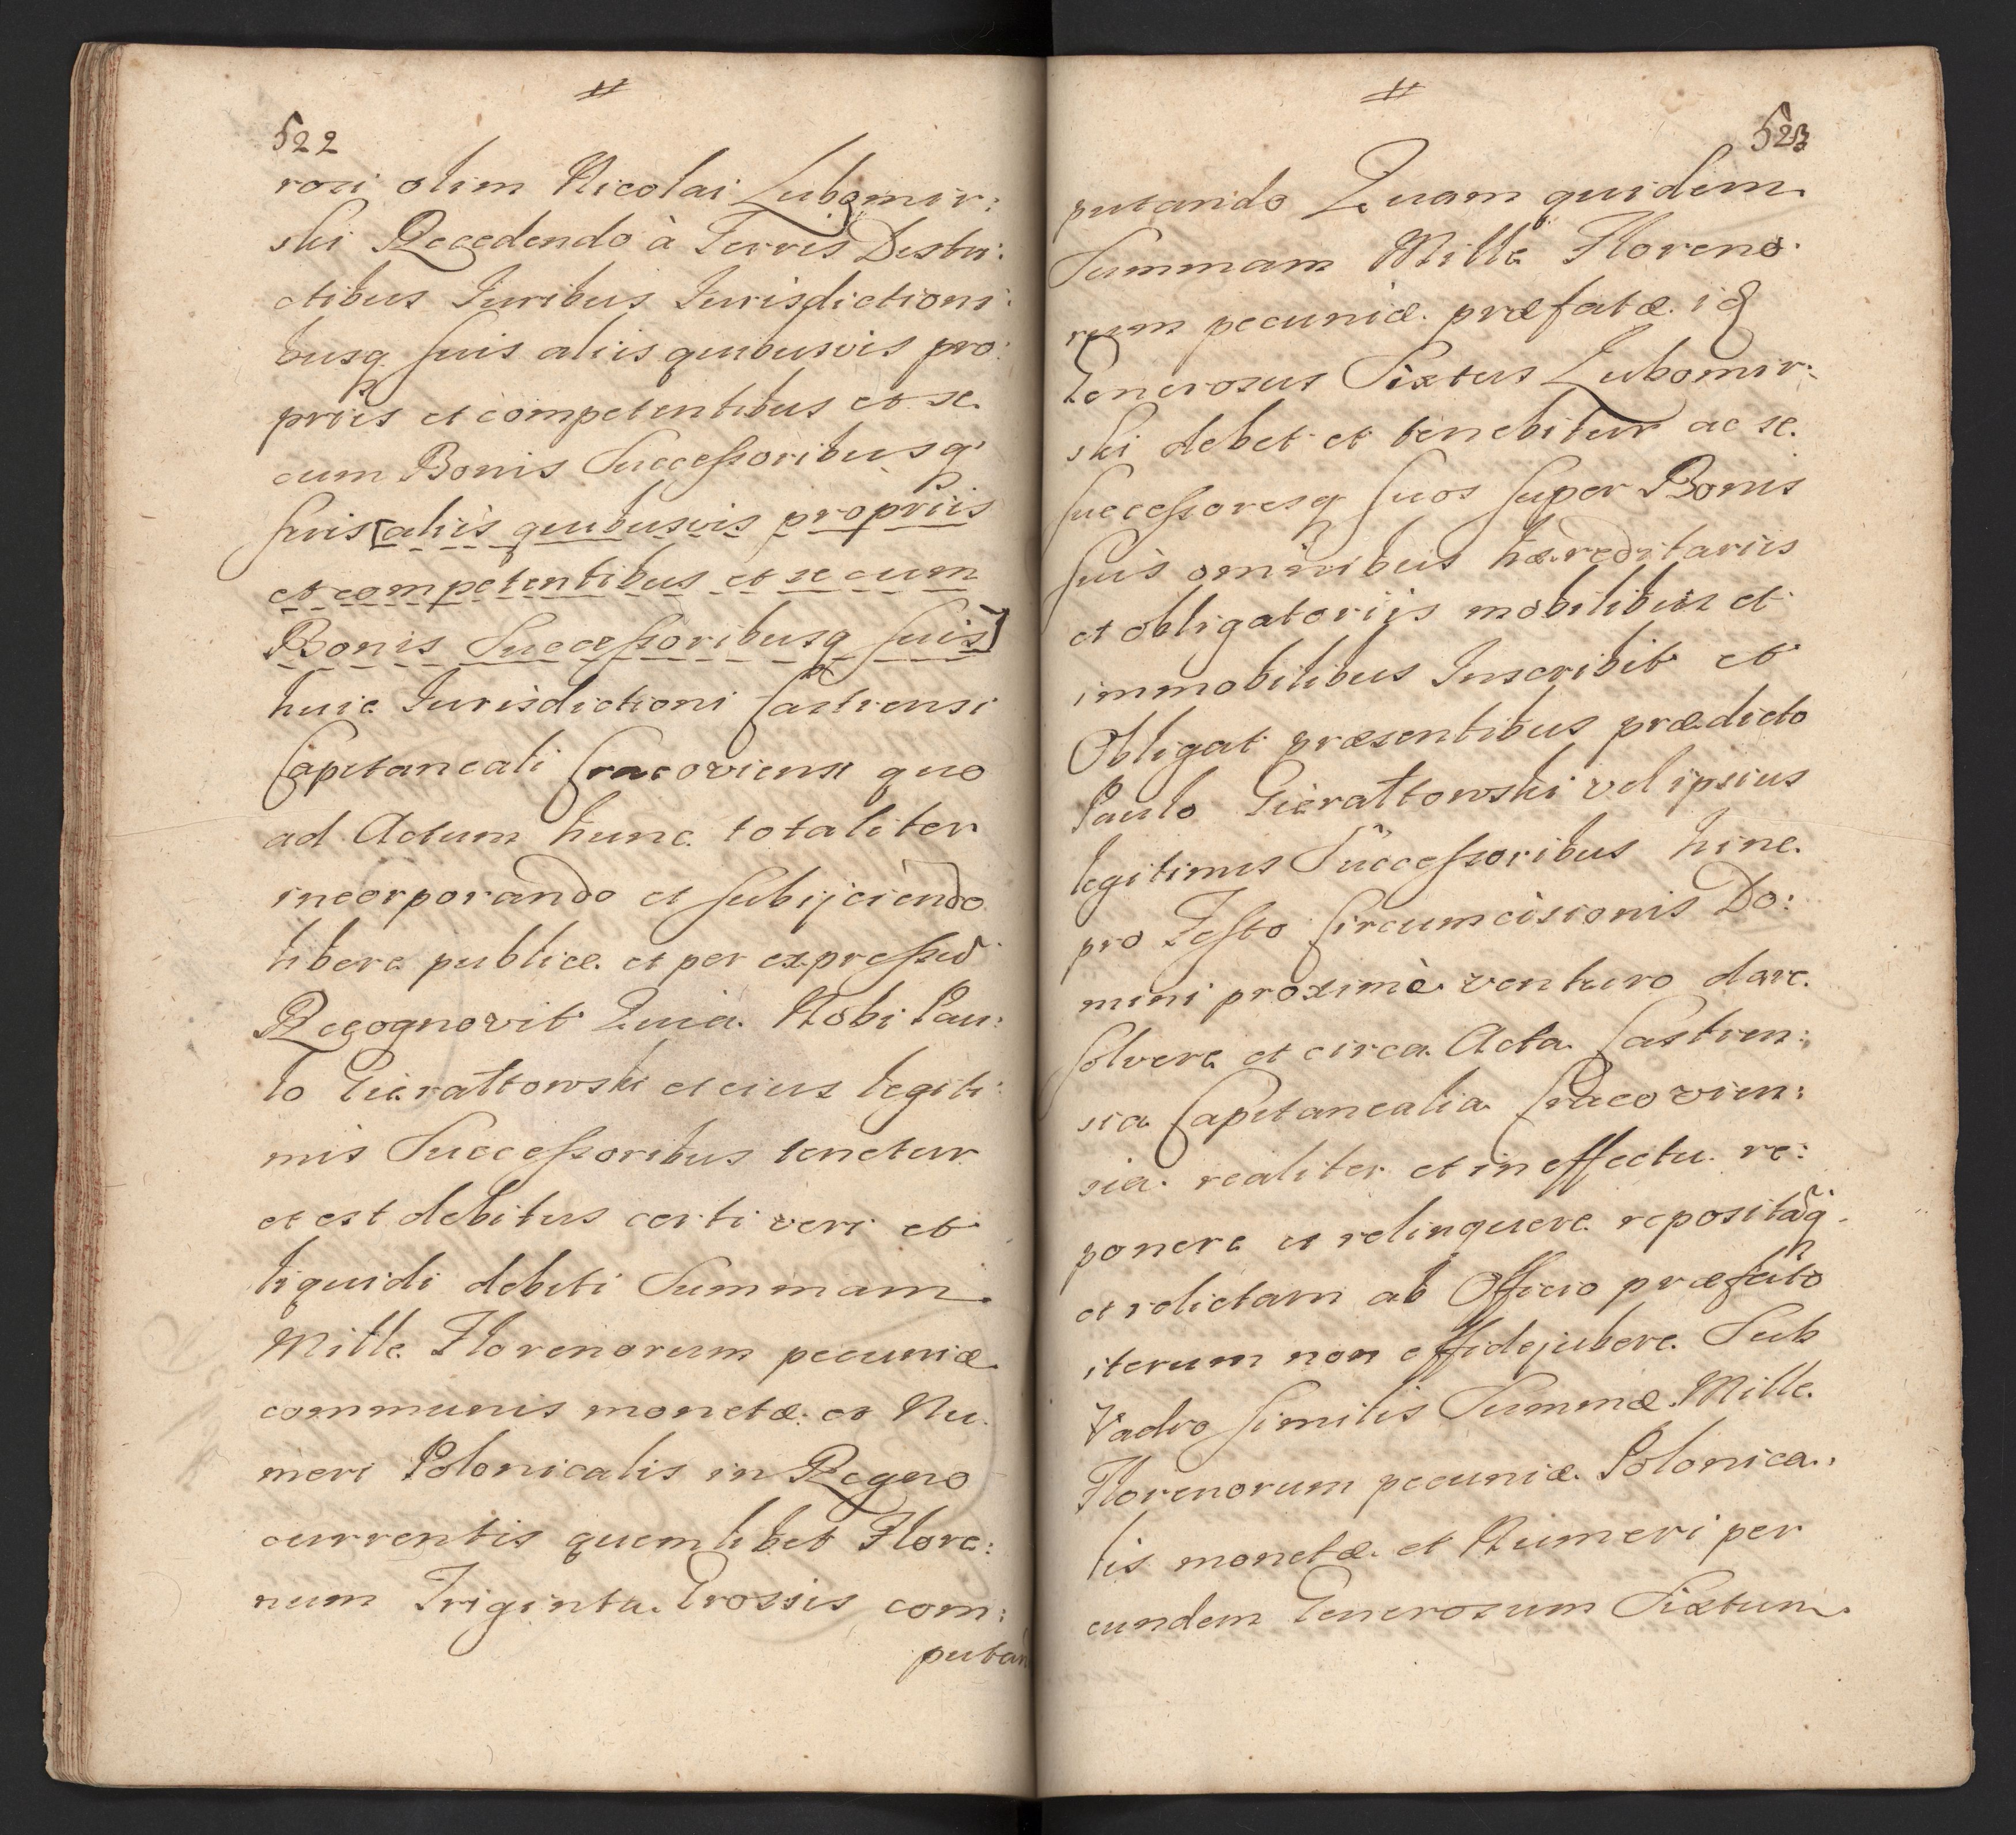 522
rosi olim Nicolai Lubomir:
ski Recedendo à Terris Distri:
ctibus Juribus Jurisdictioni:
busq suis aliis quibusvis pro:
priis et competentibus et se
cum Bonis Successoribusq
suis [aliis quibusvis propriis
et competentibus et se cum
Bonis Successoribusq suis]
huic Jurisdictioni Castrensi
Capitaneali Cracoviensi quo
ad Actum hunc totaliter
incorporando et subijciendo
libere publice et per expressum
Recognovit Quia Nobi Pau:
lo Gierałtowski et eius legiti:
mis Successoribus tenetur
et est debitus certi veri et
liquidi debiti Summam
Mille Florenorum pecuniæ
communis monetæ et Nu
meri Polonicalis in Regno
currentis quemlibet Flore:
num Triginta Grossis com:
putan
523
putando Quam quidem
Summam Mille Floreno
rum pecuniæ præfatæ idem
Generosus Sixtus Lubomir:
ski debet et tenebitur ac se
successoresq suos super Bonis
suis omnibus hæreditariis
et obligatoriis mobilibus et
immobilibus Inscribit et
Obligat præsentibus prædicto
Paulo Gierałtowski vel ipsius
legitimis Successoribus hinc
pro Festo Circumcisionis Do:
mini proximè venturo dare
solvere et circa Acta Castren:
sia Capitanealia Cracovien:
sia realiter et in effectu re:
ponere et relinquere repositamq
et relictam ab Officio præfato
iterum non effidejubere Sub
Vadio similis Summæ Mille
Florenorum pecuniæ Polonica:
lis monetæ et Numeri per
eundem Generosum Sixtum